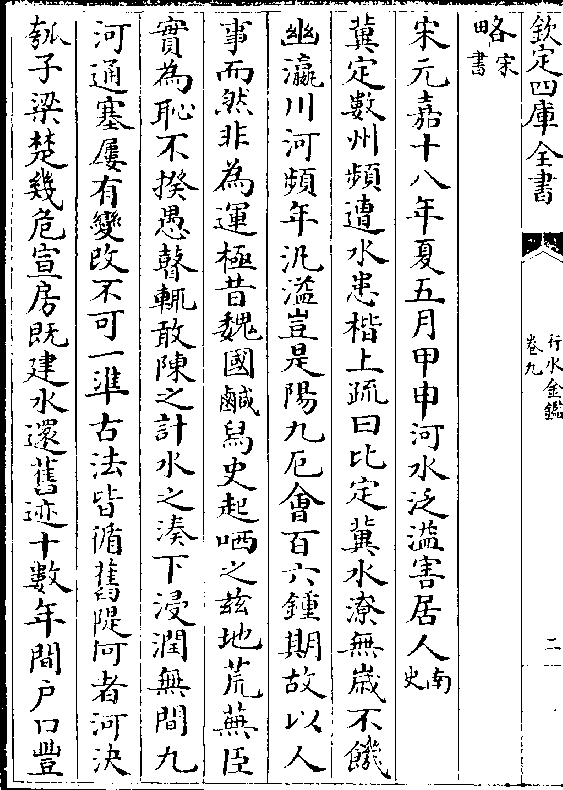 欽定四庫全書
行水金鑑
卷九
二
略宋
書
宋元嘉十八年夏五月甲申河水泛溢害居人南
史
冀定數州頻遭水患楷上疏曰比定冀水潦無歲不饑
幽瀛川河頻年汎溢豈是陽九厄會百六鍾期故以人
事而然非為運極昔魏國鹹舄史起哂之兹地荒蕪臣
實為恥不揆愚瞽輒敢陳之計水之湊下浸潤無間九
河通塞屢有變改不可一凖古法皆循舊隄何者河決
瓠子梁楚幾危宣房既建水還舊迹十數年間户口豐